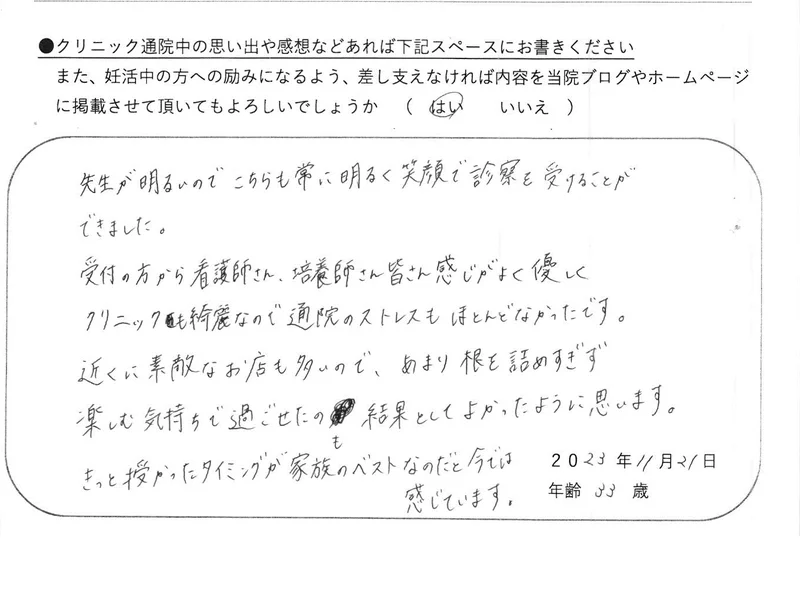 ●クリニック通院中の思い出や感想などあれば下記スペースにお書きください
また、妊活中の方への励みになるよう、差し支えなければ内容を当院ブログやホームページ
に掲載させて頂いてもよろしいでしょうか （ はい いいえ ）
先生が明るいので こちらも常に明るく笑顔で診察を受けることが
できました。
受付の方から看護師さん、培養師さん皆さん感じがよく優しく
クリニックも綺麗なので通院のストレスもほとんどなかったです。
近くに素敵なお店も多いので、あまり根を詰めすぎず
楽しむ気持ちで過ごせたのも結果としてよかったように思います。
きっと授かったタイミングが家族のベストなのだと今では
感じています。
2023年11月21日
年齢 33 歳